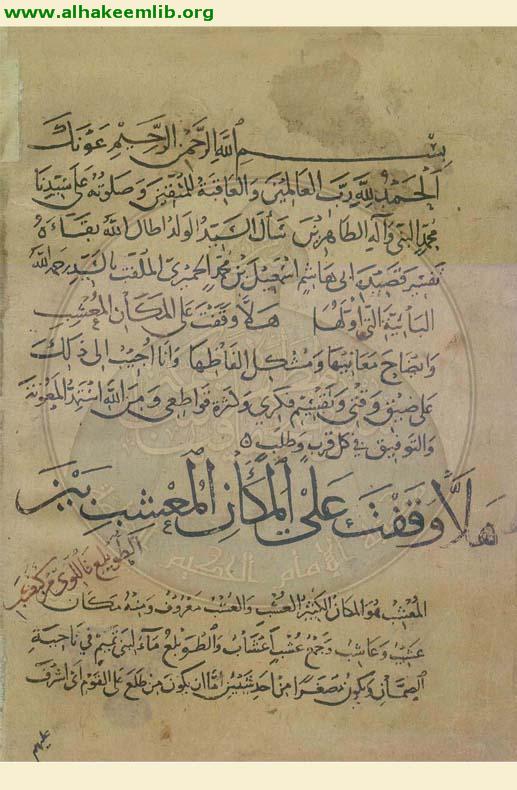 www.alhakeemlib.org
بسم الله الرحمن الرحيم عونك
الحمد لله رب العالمين والعاقبة للمتقين وصلوته على سيدنا
محمد النبي وآله الطاهرين سأل السيد الولد اطال الله بقاءه
تفسير قصيدة ابى هاشم اسمعيل بن محمد الحميرى الملقب بالسيد رحمه الله
البائية التى اولها هلا وقفت على المكان المعشب
وايضاح معانيها ومشكل الفاظها وانا اجيب الى ذلك
على ضيق وقتى وتقسم فكرى وكثرة قواطعى ومن الله استمد المعونة
والتوفيق فى كل قرب وطلب
هلا وقفت على المكان المعشب بين
الطويلع فاللوى من كبكب
المعشب هو المكان الكثير العشب والعشب معروف ومنه مكان
عشب وعاشب وجمع عشب اعشاب والطويلع ماء لبنى تميم فى ناحية
الصمان ويكون مصغرا من احد شيئين اما ان يكون من طلع على القوم اى اشرف
عليهم